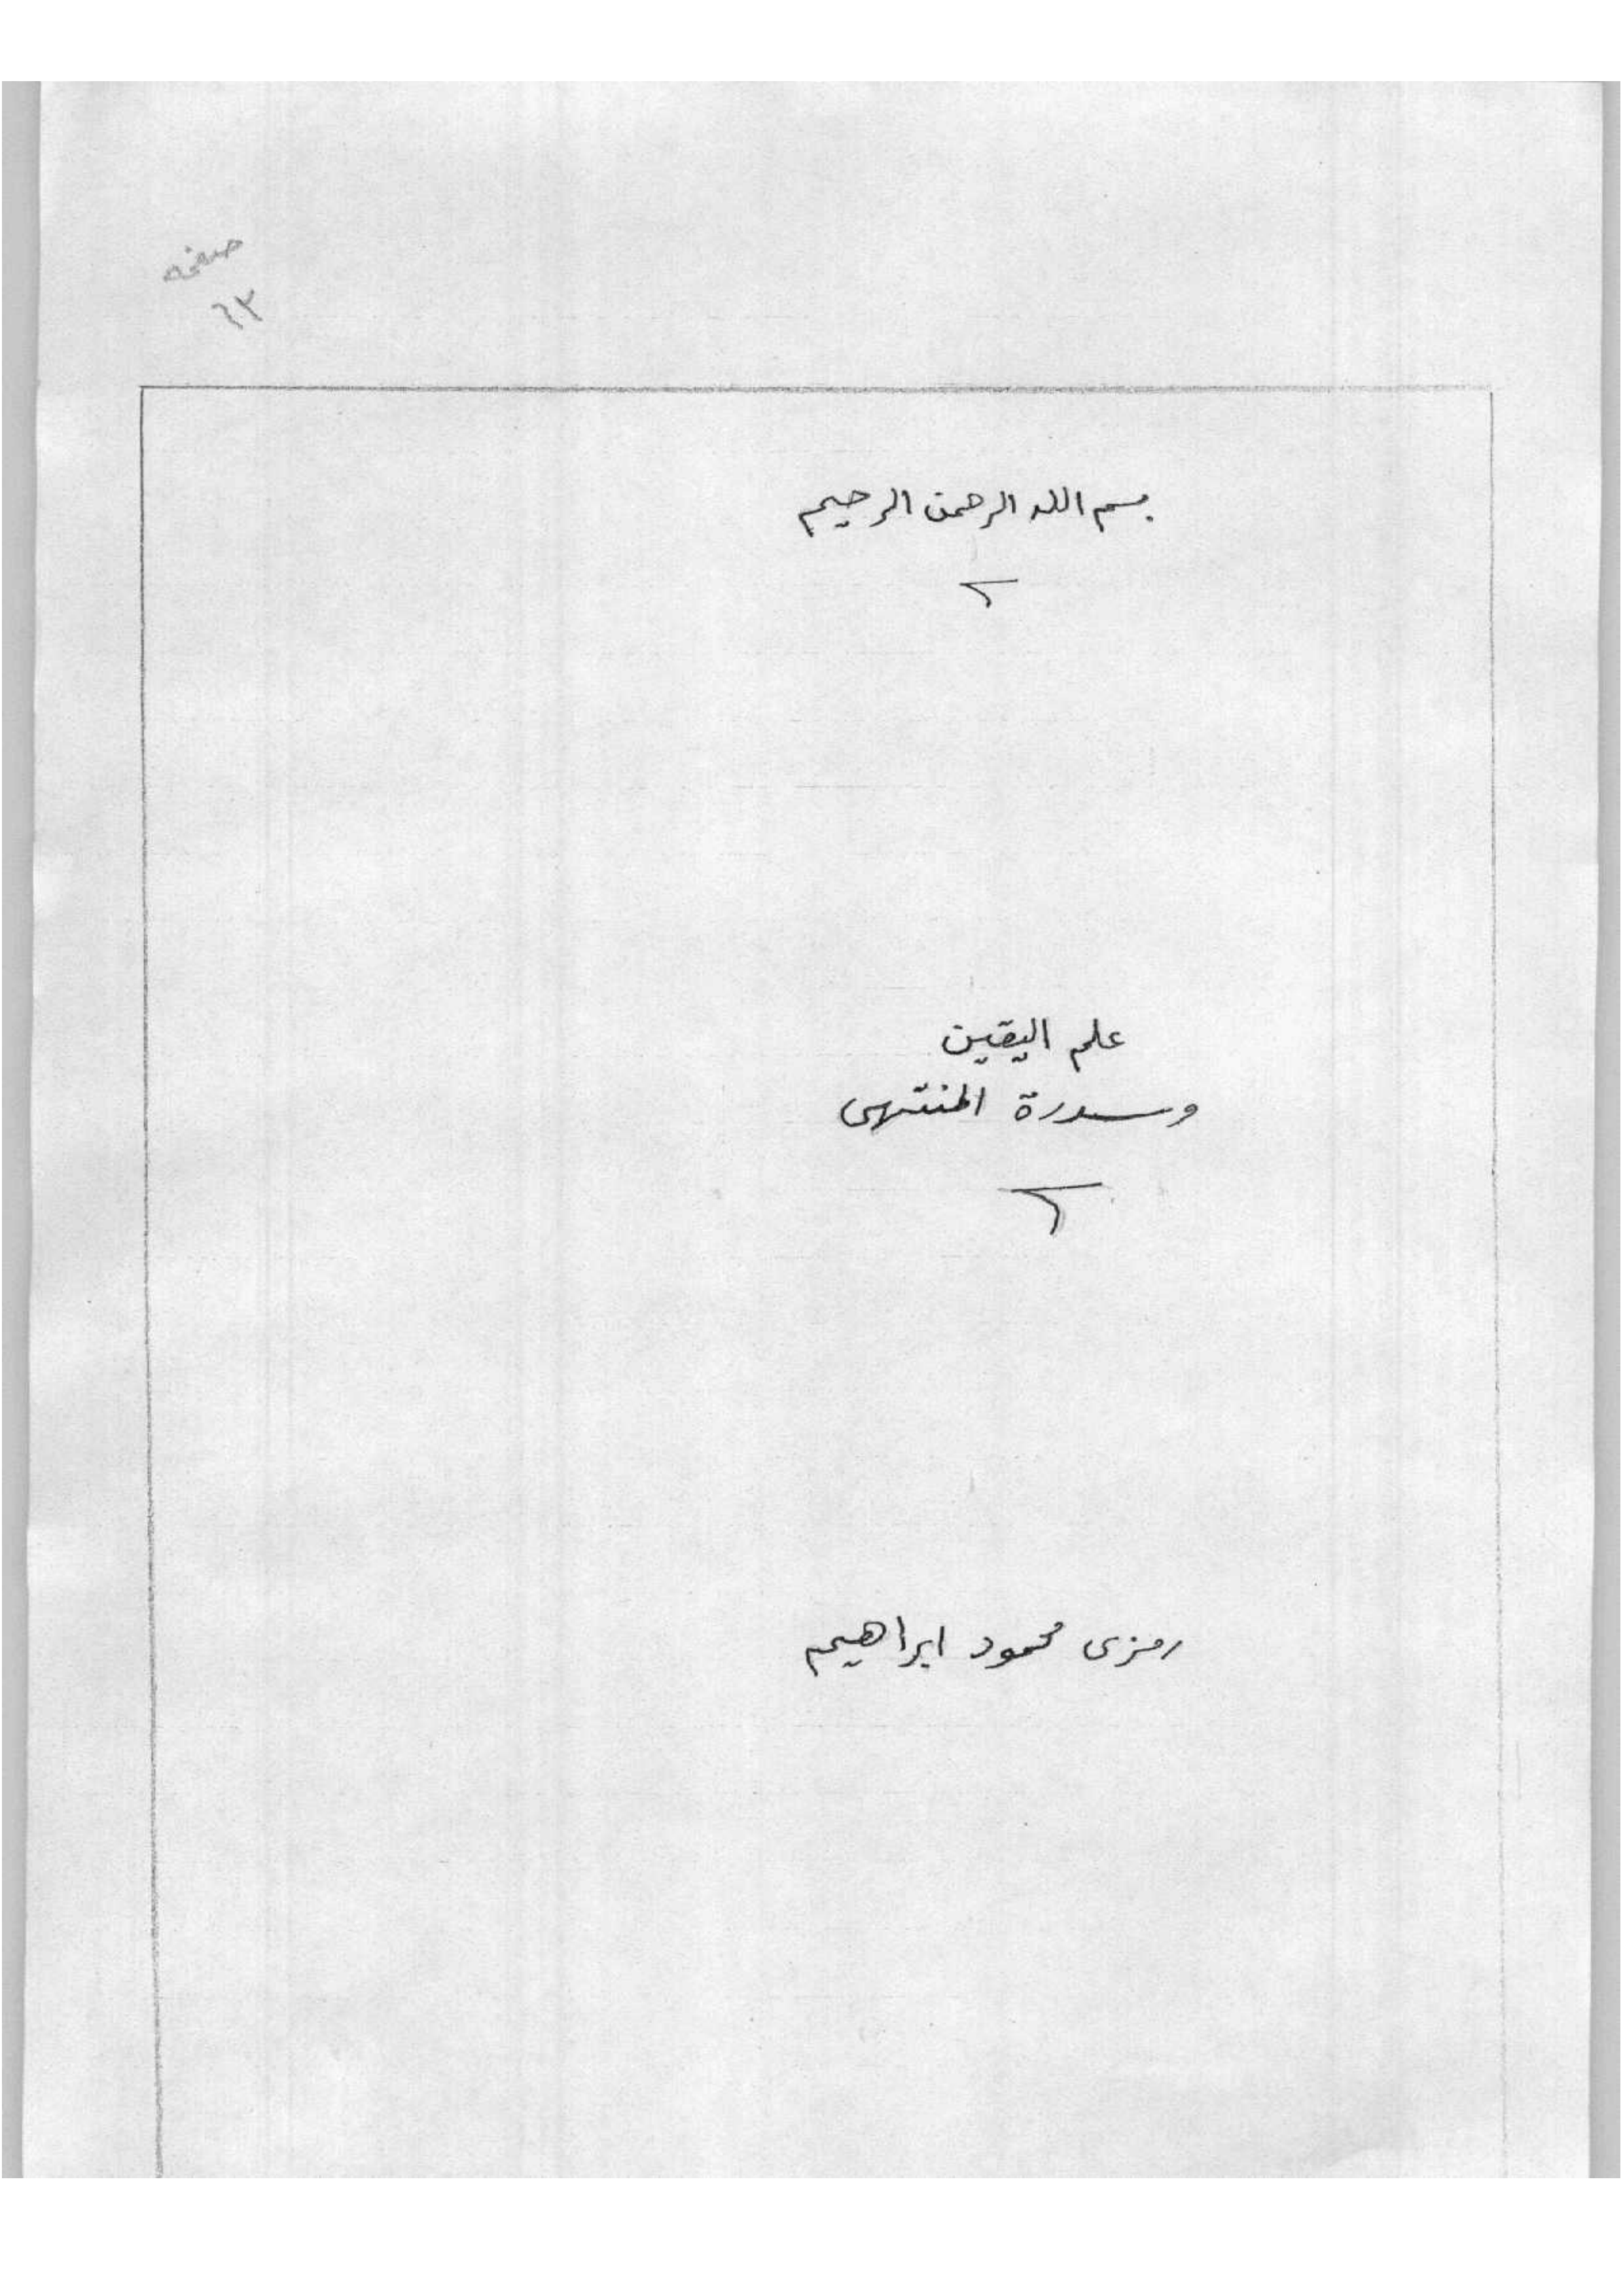 صفحه
٦٢
بسم الله الرحمن الرحيم
علم اليقين
وسدرة المنتهى
رمزى محمود ابراهيم